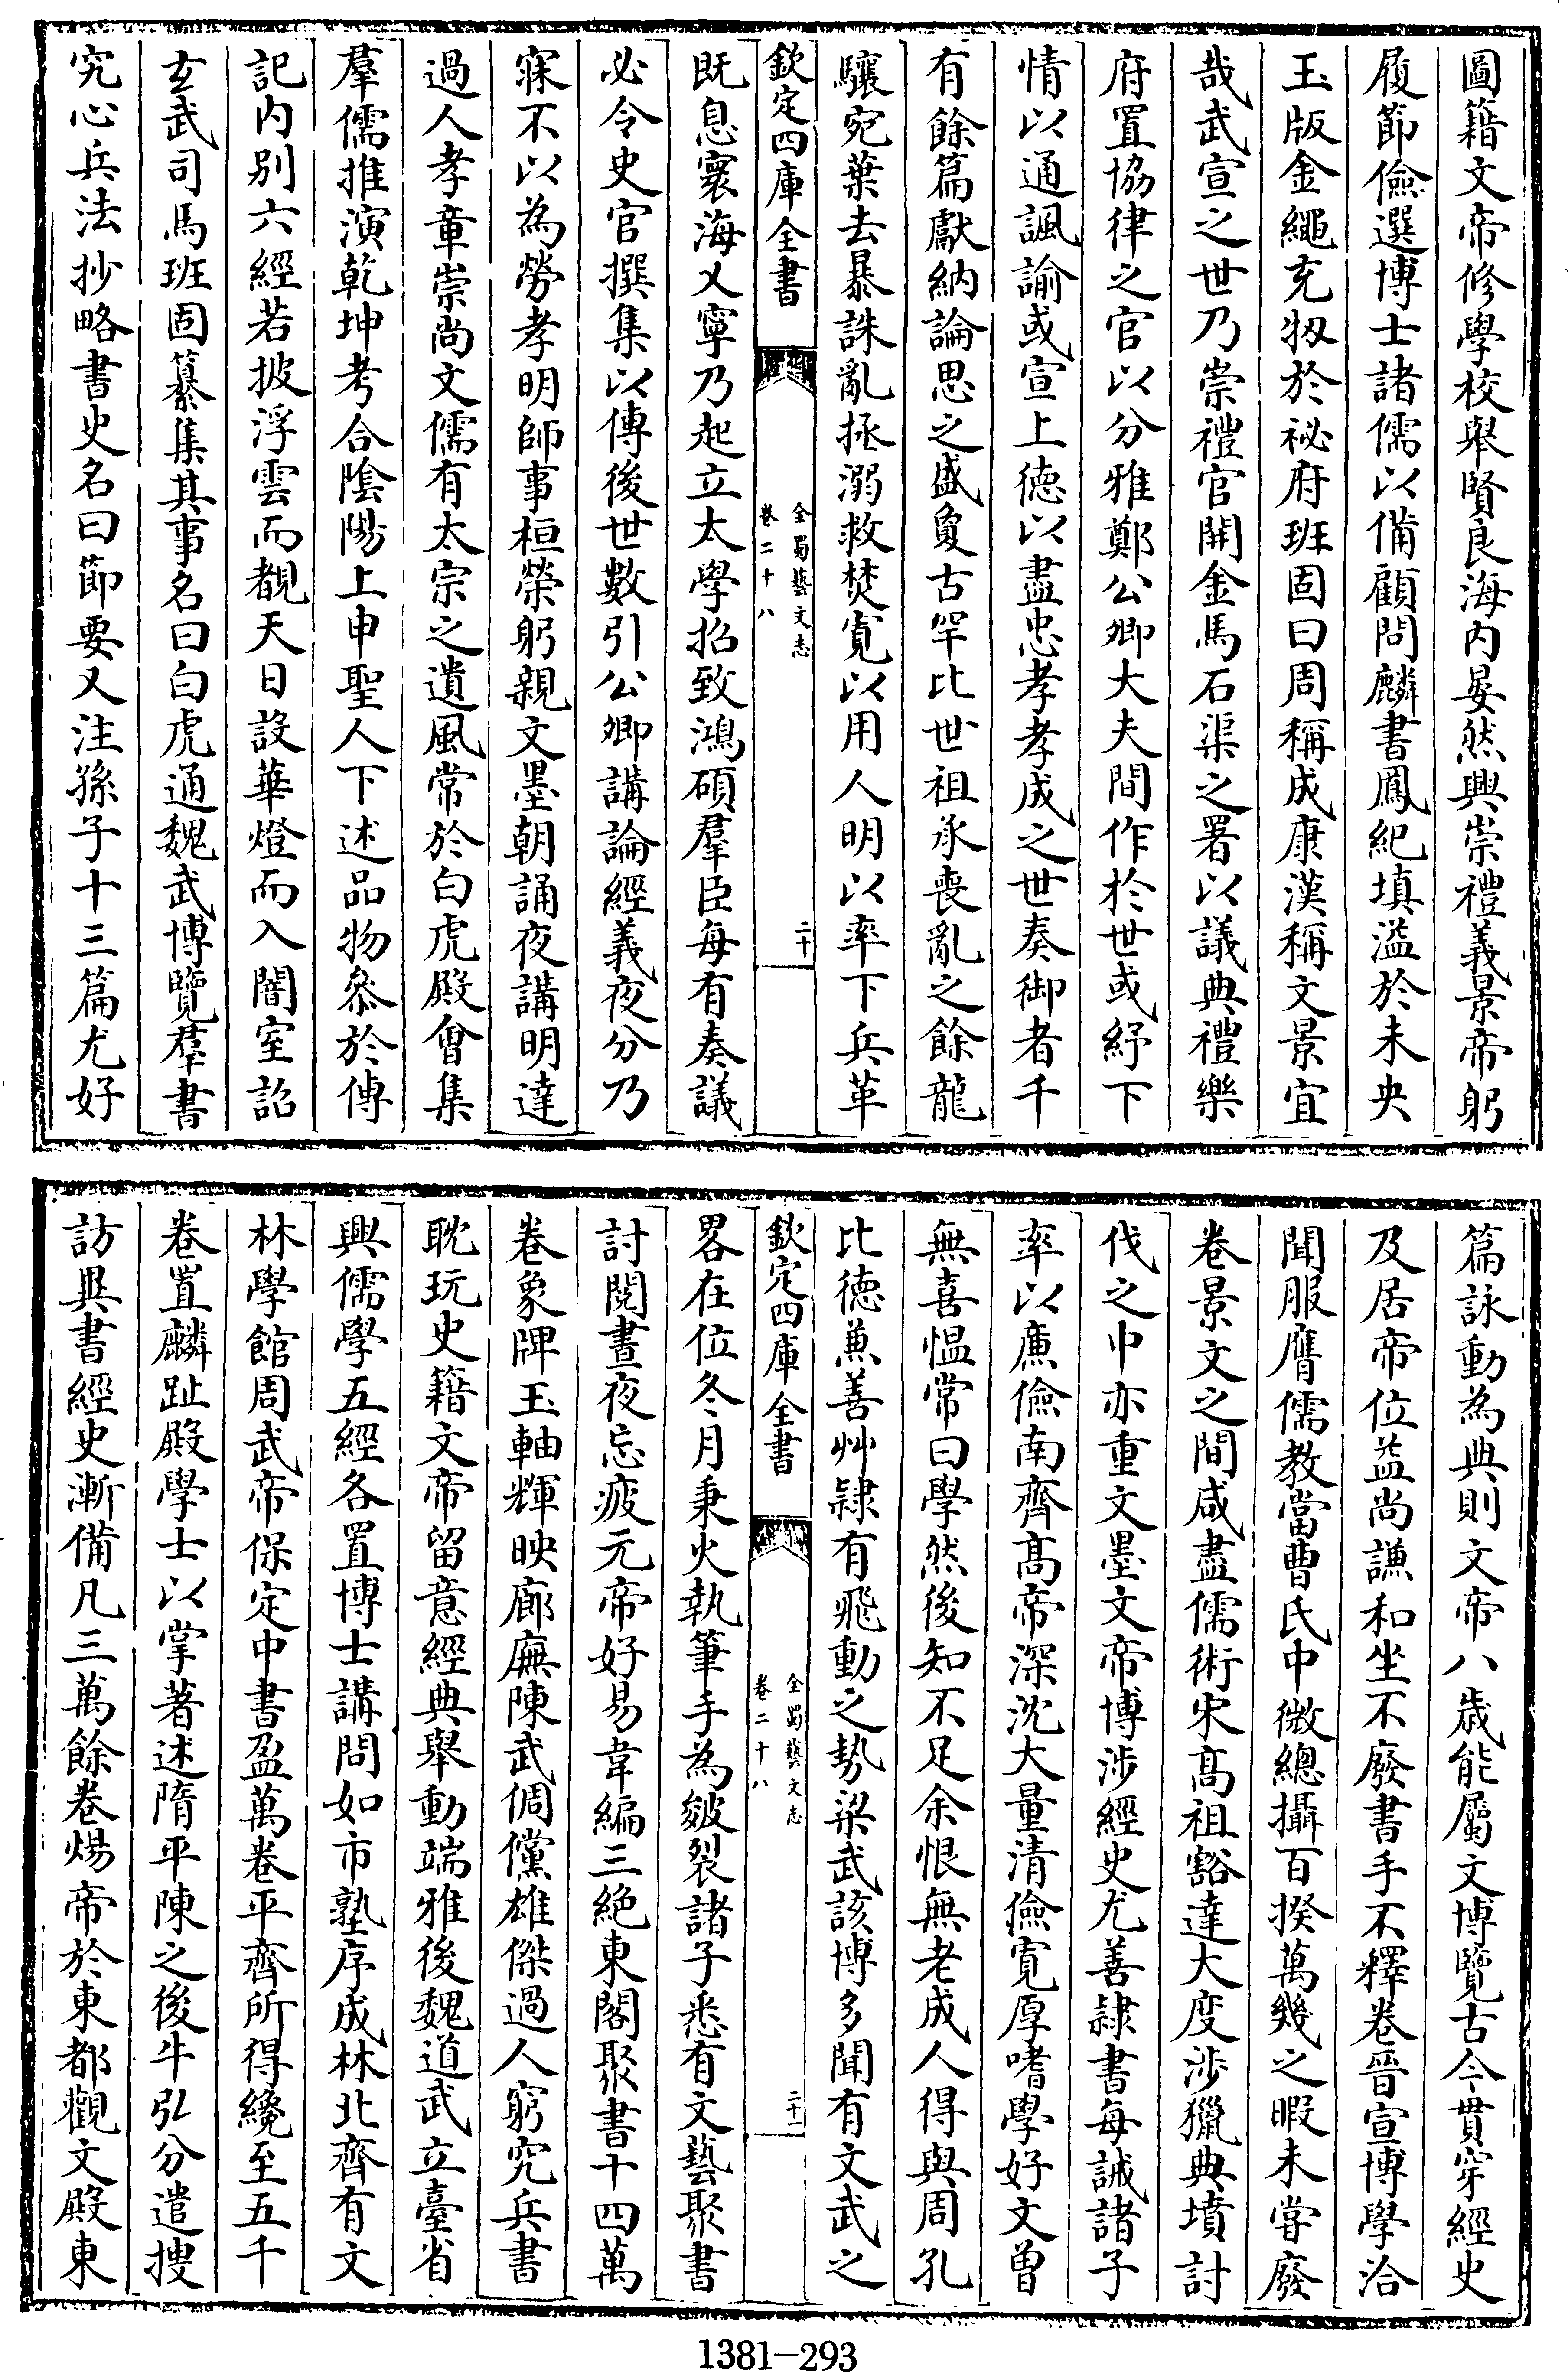 圖籍文帝修學校舉賢良海内晏然興崇禮義景帝躬
履節儉選博士諸儒以備顧問麟書鳳紀填溢於未央
玉版金繩充牣於祕府班固曰周稱成康漢稱文景宜
哉武宣之世乃崇禮官開金馬石渠之署以議典禮樂
府置協律之官以分雅鄭公卿大夫間作於世或紓下
情以通諷諭或宣上徳以盡忠孝孝成之世奏御者千
有餘篇獻納論思之盛敻古罕比世祖承喪亂之餘龍
驤宛葉去暴誅亂拯溺救焚寛以用人明以率下兵革
欽定四庫全書
全蜀藝文志
卷二十八
二十
既息寰海乂寧乃起立太學招致鴻碩羣臣每有奏議
必令史官撰集以傳後世數引公卿講論經義夜分乃
寐不以為勞孝明師事桓榮躬親文墨朝誦夜講明達
過人孝章崇尚文儒有太宗之遺風常於白虎殿㑹集
羣儒推演乾坤考合陰陽上申聖人下述品物叅於傳
記内别六經若披浮雲而覩天日設華燈而入闇室詔
玄武司馬班固纂集其事名曰白虎通魏武博覽羣書
究心兵法抄略書史名曰節要又注孫子十三篇尤好
篇詠動為典則文帝八歳能屬文博覽古今貫穿經史
及居帝位益尚謙和坐不廢書手不釋卷晉宣博學洽
聞服膺儒教當曹氏中微總攝百揆萬幾之暇未甞廢
卷景文之間咸盡儒術宋髙祖豁達大度涉獵典墳討
伐之中亦重文墨文帝博涉經史尤善隷書每誡諸子
率以亷儉南齊髙帝深沈大量清儉寛厚嗜學好文曽
無喜愠常曰學然後知不足余恨無老成人得與周孔
比徳兼善艸隷有飛動之勢梁武該博多聞有文武之
欽定四庫全書
全蜀藝文志
卷二十八
二十一
畧在位冬月秉火執筆手為皴裂諸子悉有文藝聚書
討閱晝夜忘疲元帝好易韋編三絶東閣聚書十四萬
卷象牌玉軸輝映廊廡陳武倜儻雄傑過人窮究兵書
耽玩史籍文帝留意經典舉動端雅後魏道武立臺省
興儒學五經各置博士講問如市塾序成林北齊有文
林學館周武帝保定中書盈萬卷平齊所得纔至五千
卷置麟趾殿學士以掌著述隋平陳之後牛弘分遣搜
訪異書經史漸備凡三萬餘卷煬帝於東都觀文殿東
1381-293